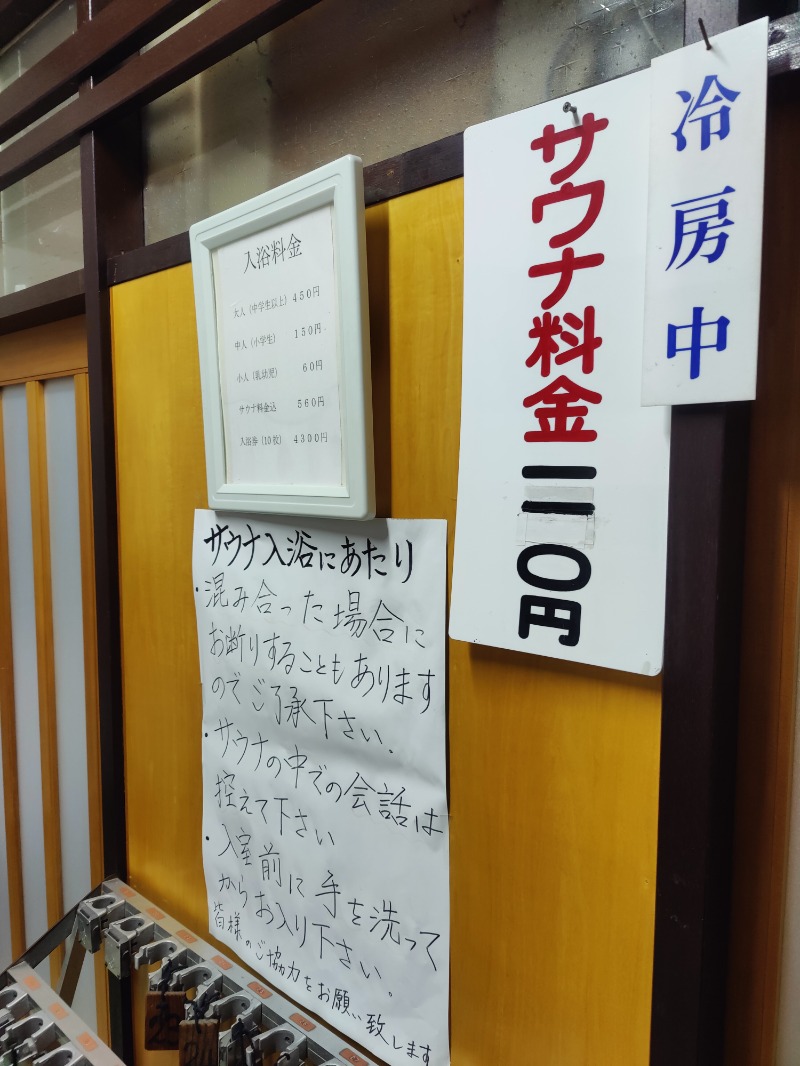 入浴料金
大人(中学生以上) 450円
中人(小学生) 150円
小人(乳幼児) 60円
サウナ料金込 560円
入浴券(10枚) 4300円
サウナ入浴にあたり
・混み合った場合に
お断りすることもあります
のでご了承下さい。
・サウナの中での会話は
控えて下さい
・入室前に手を洗って
からお入り下さい。
皆様のご協力をお願い致します
サウナ料金一一〇円
冷房中